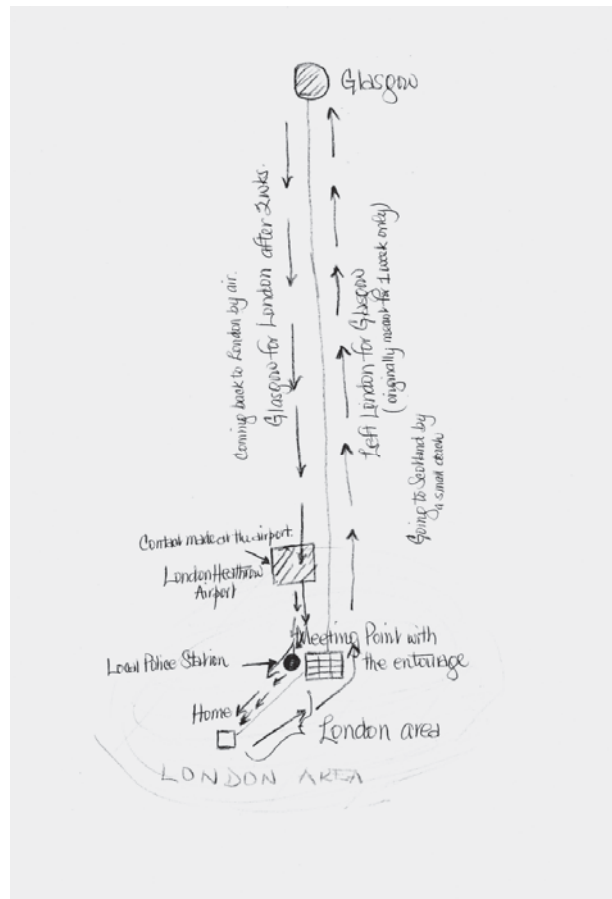 Glasgow
Coming back to London by air.
Glasgow for London after 2wks.
Left London for Glasgow
(originally meant for 1 week only)
Going to Scotland by
a small coach
Contact made at the airport.
London Heathrow
Airport
Meeting Point with
the entourage
Local Police Station
Home
London area
LONDON AREA